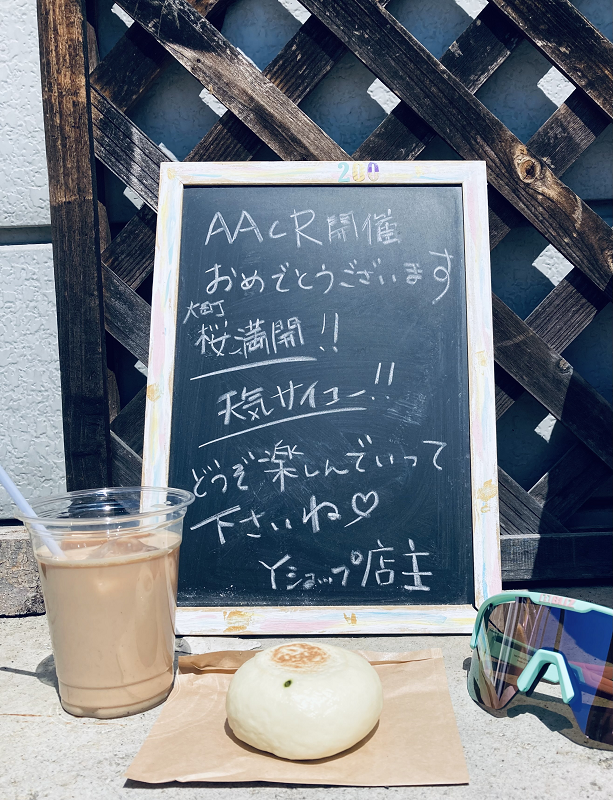 210
AACR開催
おめでとうございます
大町
桜満開!!
天気サイコー!!
どうぞ楽しんでいって
下さいね♡
Yショップ店主